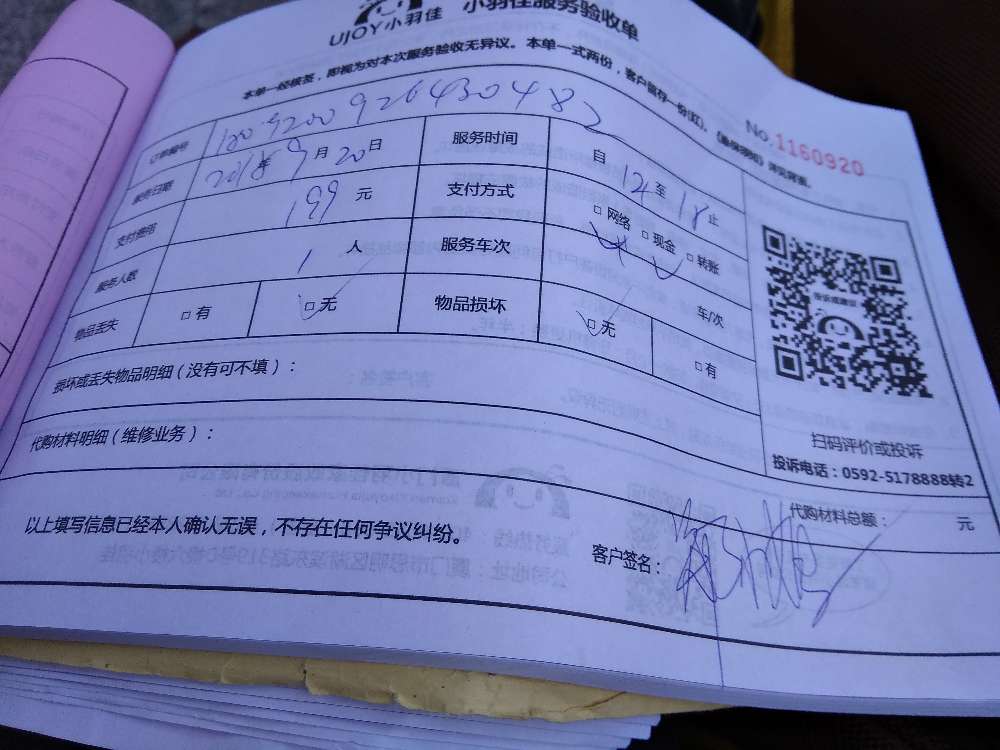 UJOY小羽佳 小羽佳服务验收单
本单一经核签，即视为对本次服务验收无异议。本单一式两份，客户留存一份(红)。
No.1160920
订单编号 180920092644304
服务日期 2018年9月20日 服务时间 自 14 至 18 止
支付费用 199 元 支付方式 □网络 □现金 □转账
服务人数 1 人 服务车次 车/次
物品丢失 □有 □无 物品损坏 □无 □有
损坏或丢失物品明细（没有可不填）：
扫码评价或投诉
投诉电话：0592-5178888转2
代购材料明细（维修业务）：
代购材料总额： 元
以上填写信息已经本人确认无误，不存在任何争议纠纷。
客户签名：